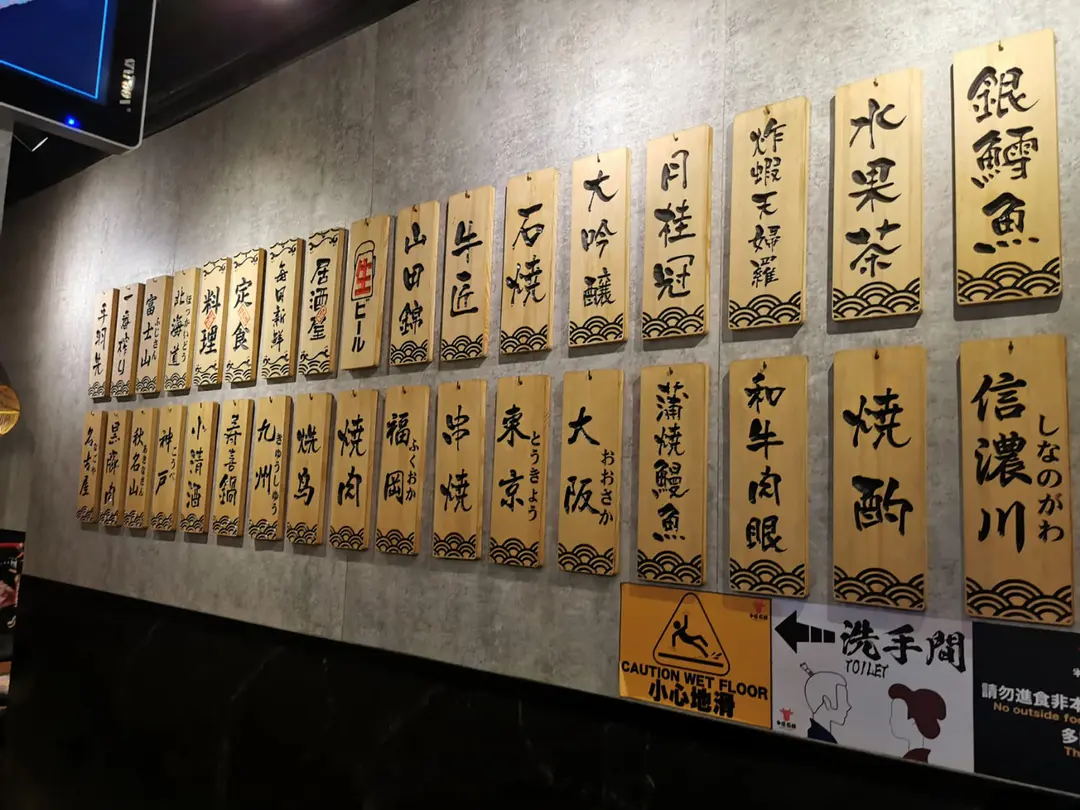 手羽先
一番搾り
富士山
ふじさん
北海道
ほっかいどう
料理
定食
每日新鮮
居酒屋
生ビール
山田錦
牛匠
石燒
大吟醸
月桂冠
炸蝦天婦羅
水果茶
銀鱈魚
名古屋
なごや
黒豚肉
秋名山
あきなさん
神戸
こうべ
小清酒
寿喜鍋
九州
きゅうしゅう
焼鳥
焼肉
福岡
ふくおか
串燒
東京
とうきょう
大阪
おおさか
蒲燒鰻魚
和牛肉眼
焼酌
信濃川
しなのがわ
CAUTION WET FLOOR
小心地滑
洗手間
TOILET
請勿進食非本
No outside fo
多
Th